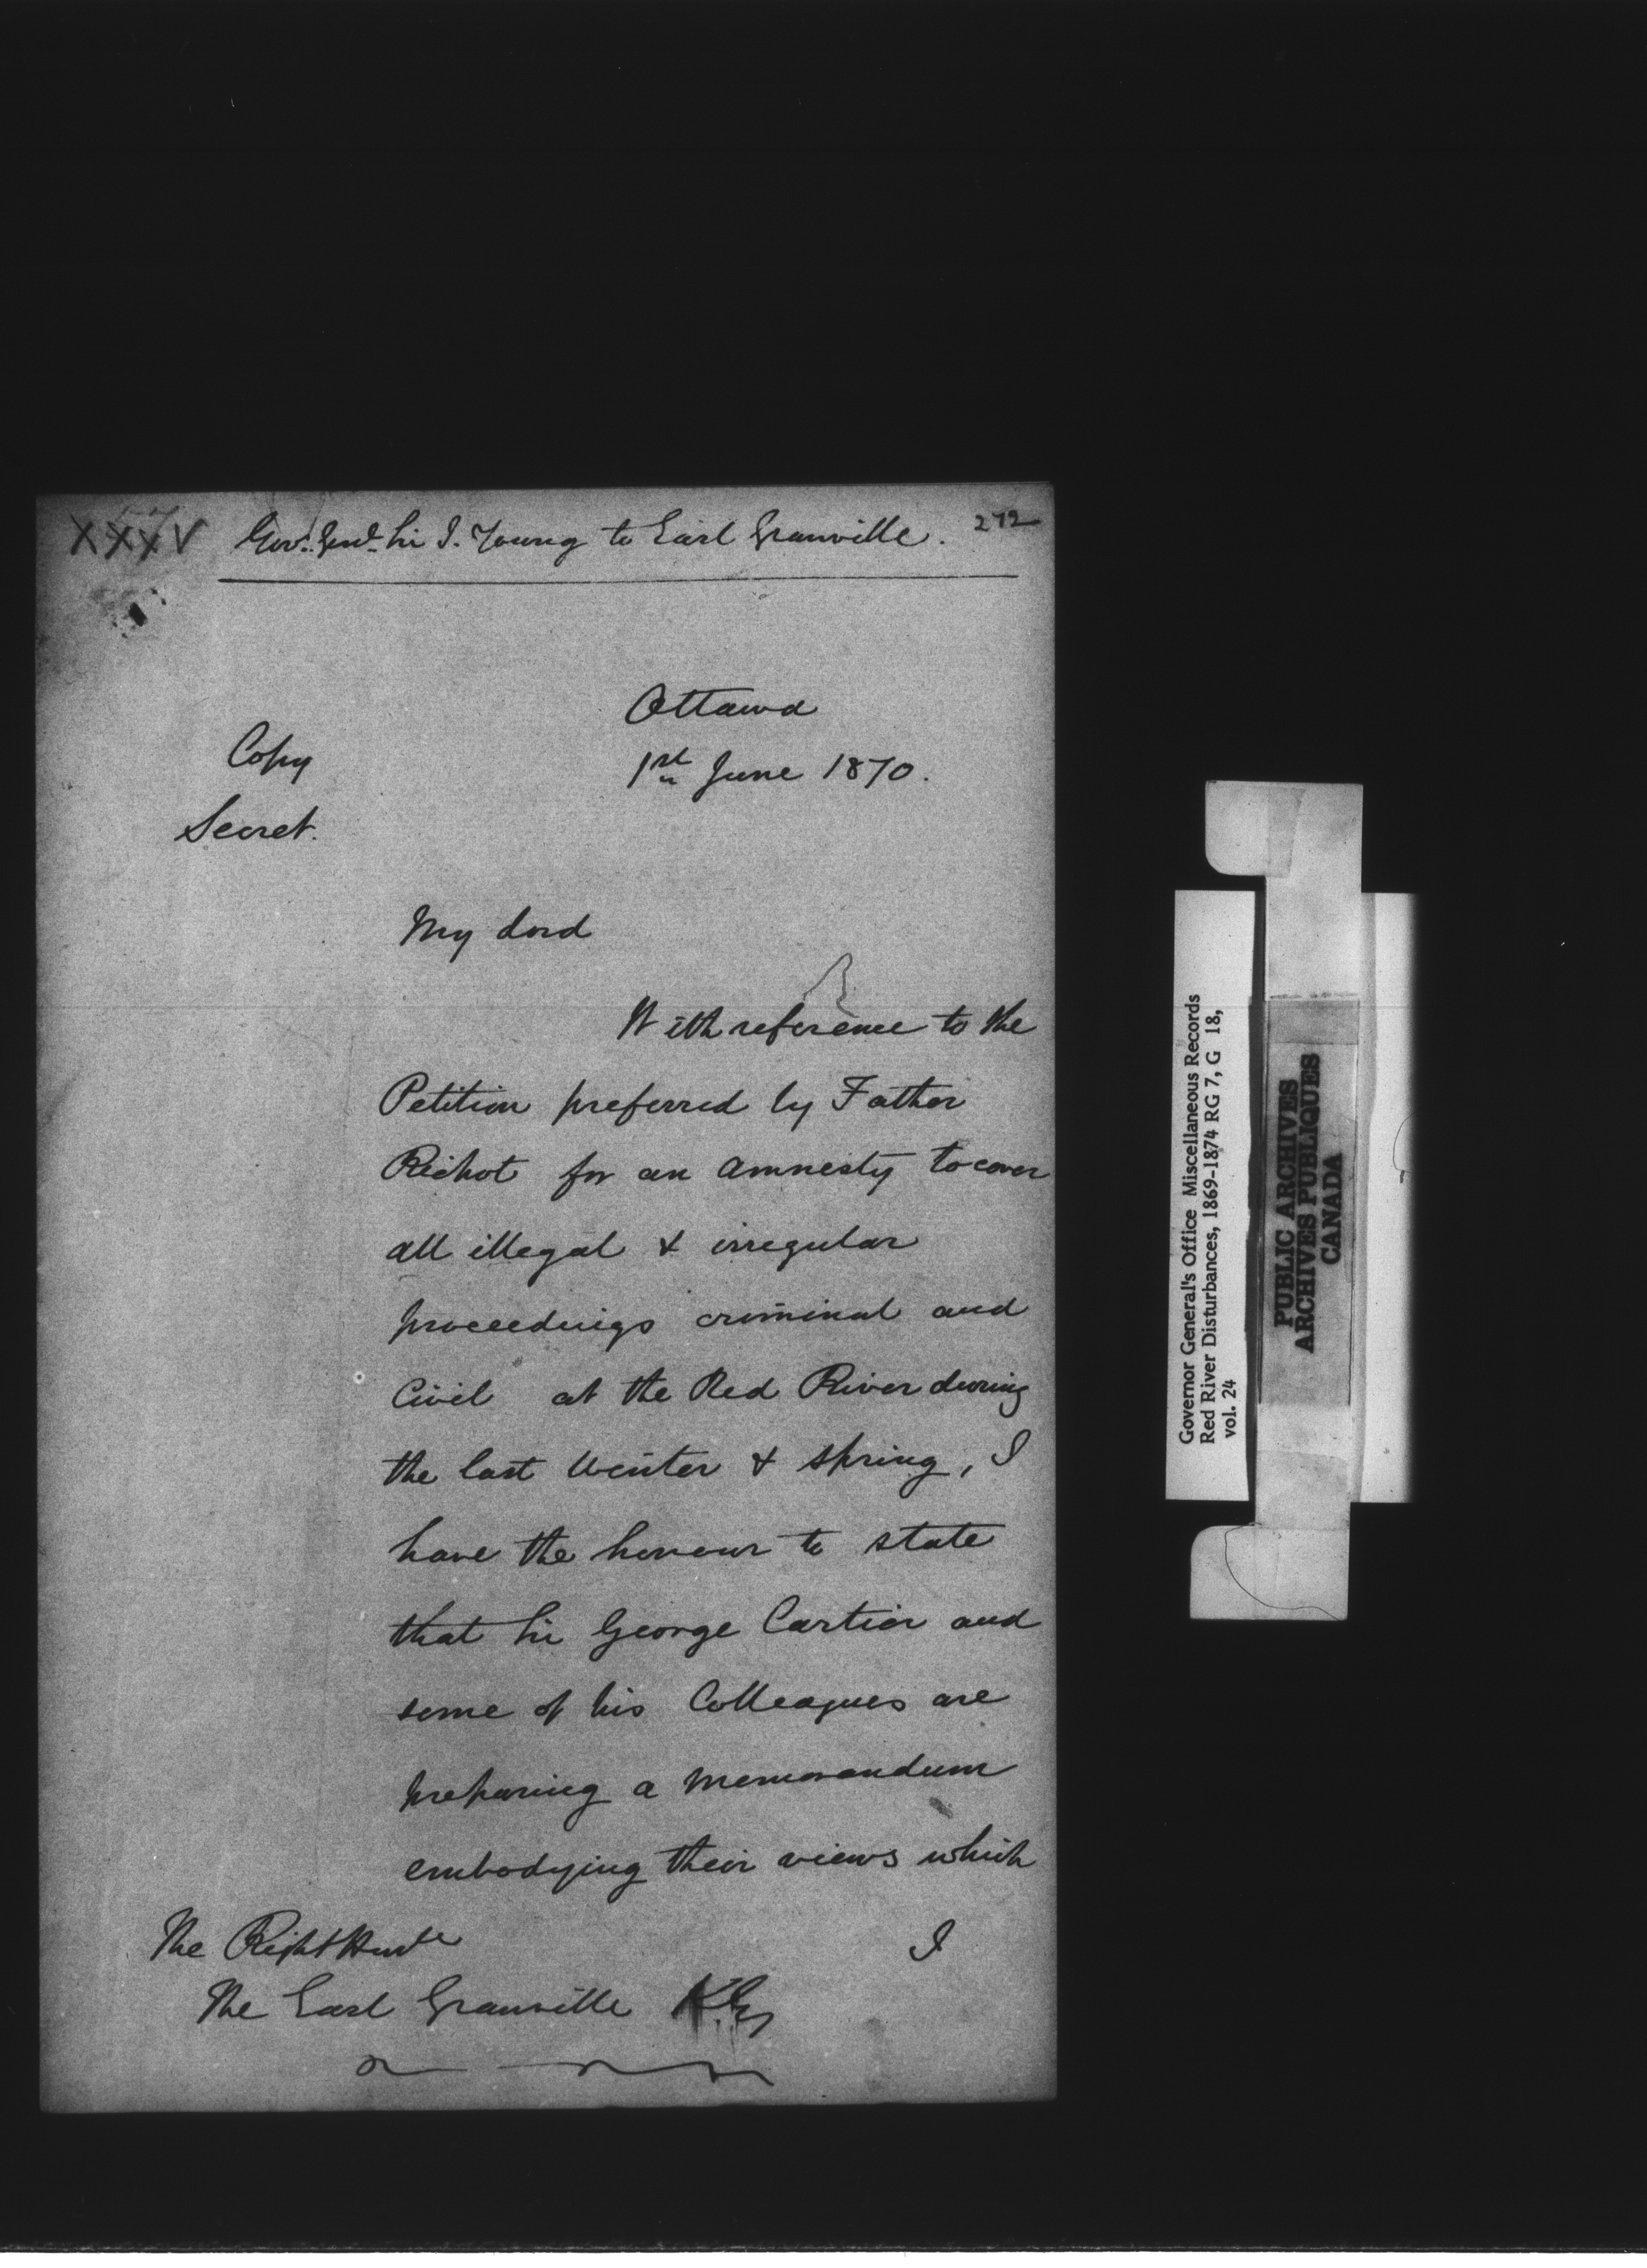 XXXV Gov. Genl. Sir J. Young to Earl Granville. 272
Ottawa
1st June 1870.
Copy
Secret.
My Lord
With reference to the
Petition preferred by Father
Richot for an amnesty to cover
all illegal & irregular
proceedings criminal and
Civil at the Red River during
the last Winter & spring, I
have the honour to state
that Sir George Cartier and
some of his Colleagues are
preparing a Memorandum
embodying their views which
I
The Right Honble
The Earl Granville K.G.
Governor General's Office Miscellaneous Records
Red River Disturbances, 1869-1874 RG 7, G 18,
vol. 24
PUBLIC ARCHIVES
ARCHIVES PUBLIQUES
CANADA